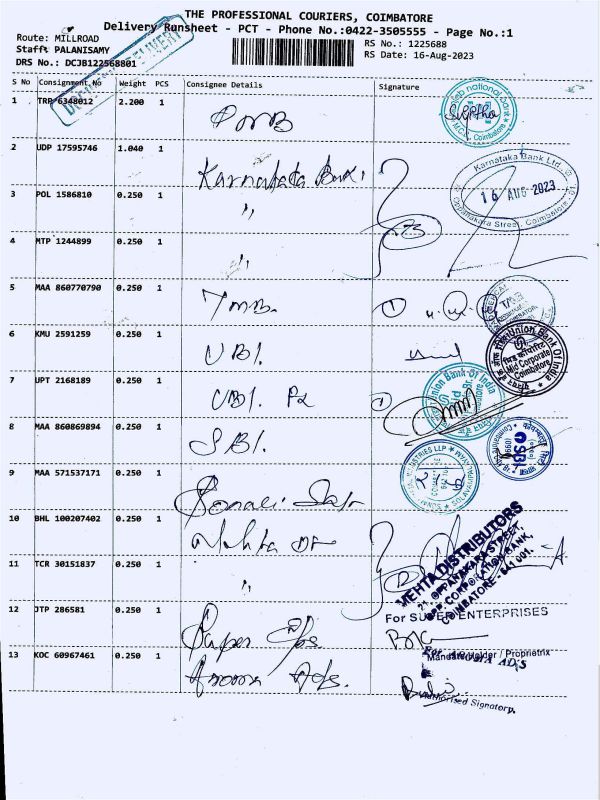 THE PROFESSIONAL COURIERS, COIMBATORE
Delivery Runsheet - PCT - Phone No.:0422-3505555 - Page No.:1
Route: MILLROAD
Staff: PALANISAMY
DRS No.: DCJB122568801
RS No.: 1225688
RS Date: 16-Aug-2023
S No Consignment No Weight PCS Consignee Details Signature
1 TRP 6348012 2.200 1 PNB
2 UDP 17595746 1.040 1 Karnataka Bank
Karnataka Bank Ltd.
16 AUG 2023
Oppanakara Street, Coimbatore
3 POL 1586810 0.250 1 "
4 MTP 1244899 0.250 1 "
5 MAA 860770790 0.250 1 TMB.
TMB
6 KMU 2591259 0.250 1 UBI.
Union Bank Of India
Mid Corporate
Coimbatore
7 UPT 2168189 0.250 1 UBI.
Union Bank of India
8 MAA 860869894 0.250 1 SBI.
SBI
9 MAA 571537171 0.250 1 Sonali
10 BHL 100207402 0.250 1 Mehta
MEHTA DISTRIBUTORS
21, OPPANAKARA STREET,
OPP. CORPORATION BANK,
COIMBATORE - 641 001.
11 TCR 30151837 0.250 1 "
12 JTP 286581 0.250 1 Super
For SUPER ENTERPRISES
Mandate Holder / Proprietrix
13 KOC 60967461 0.250 1 Ads.
For ADS
Authorised Signatory.